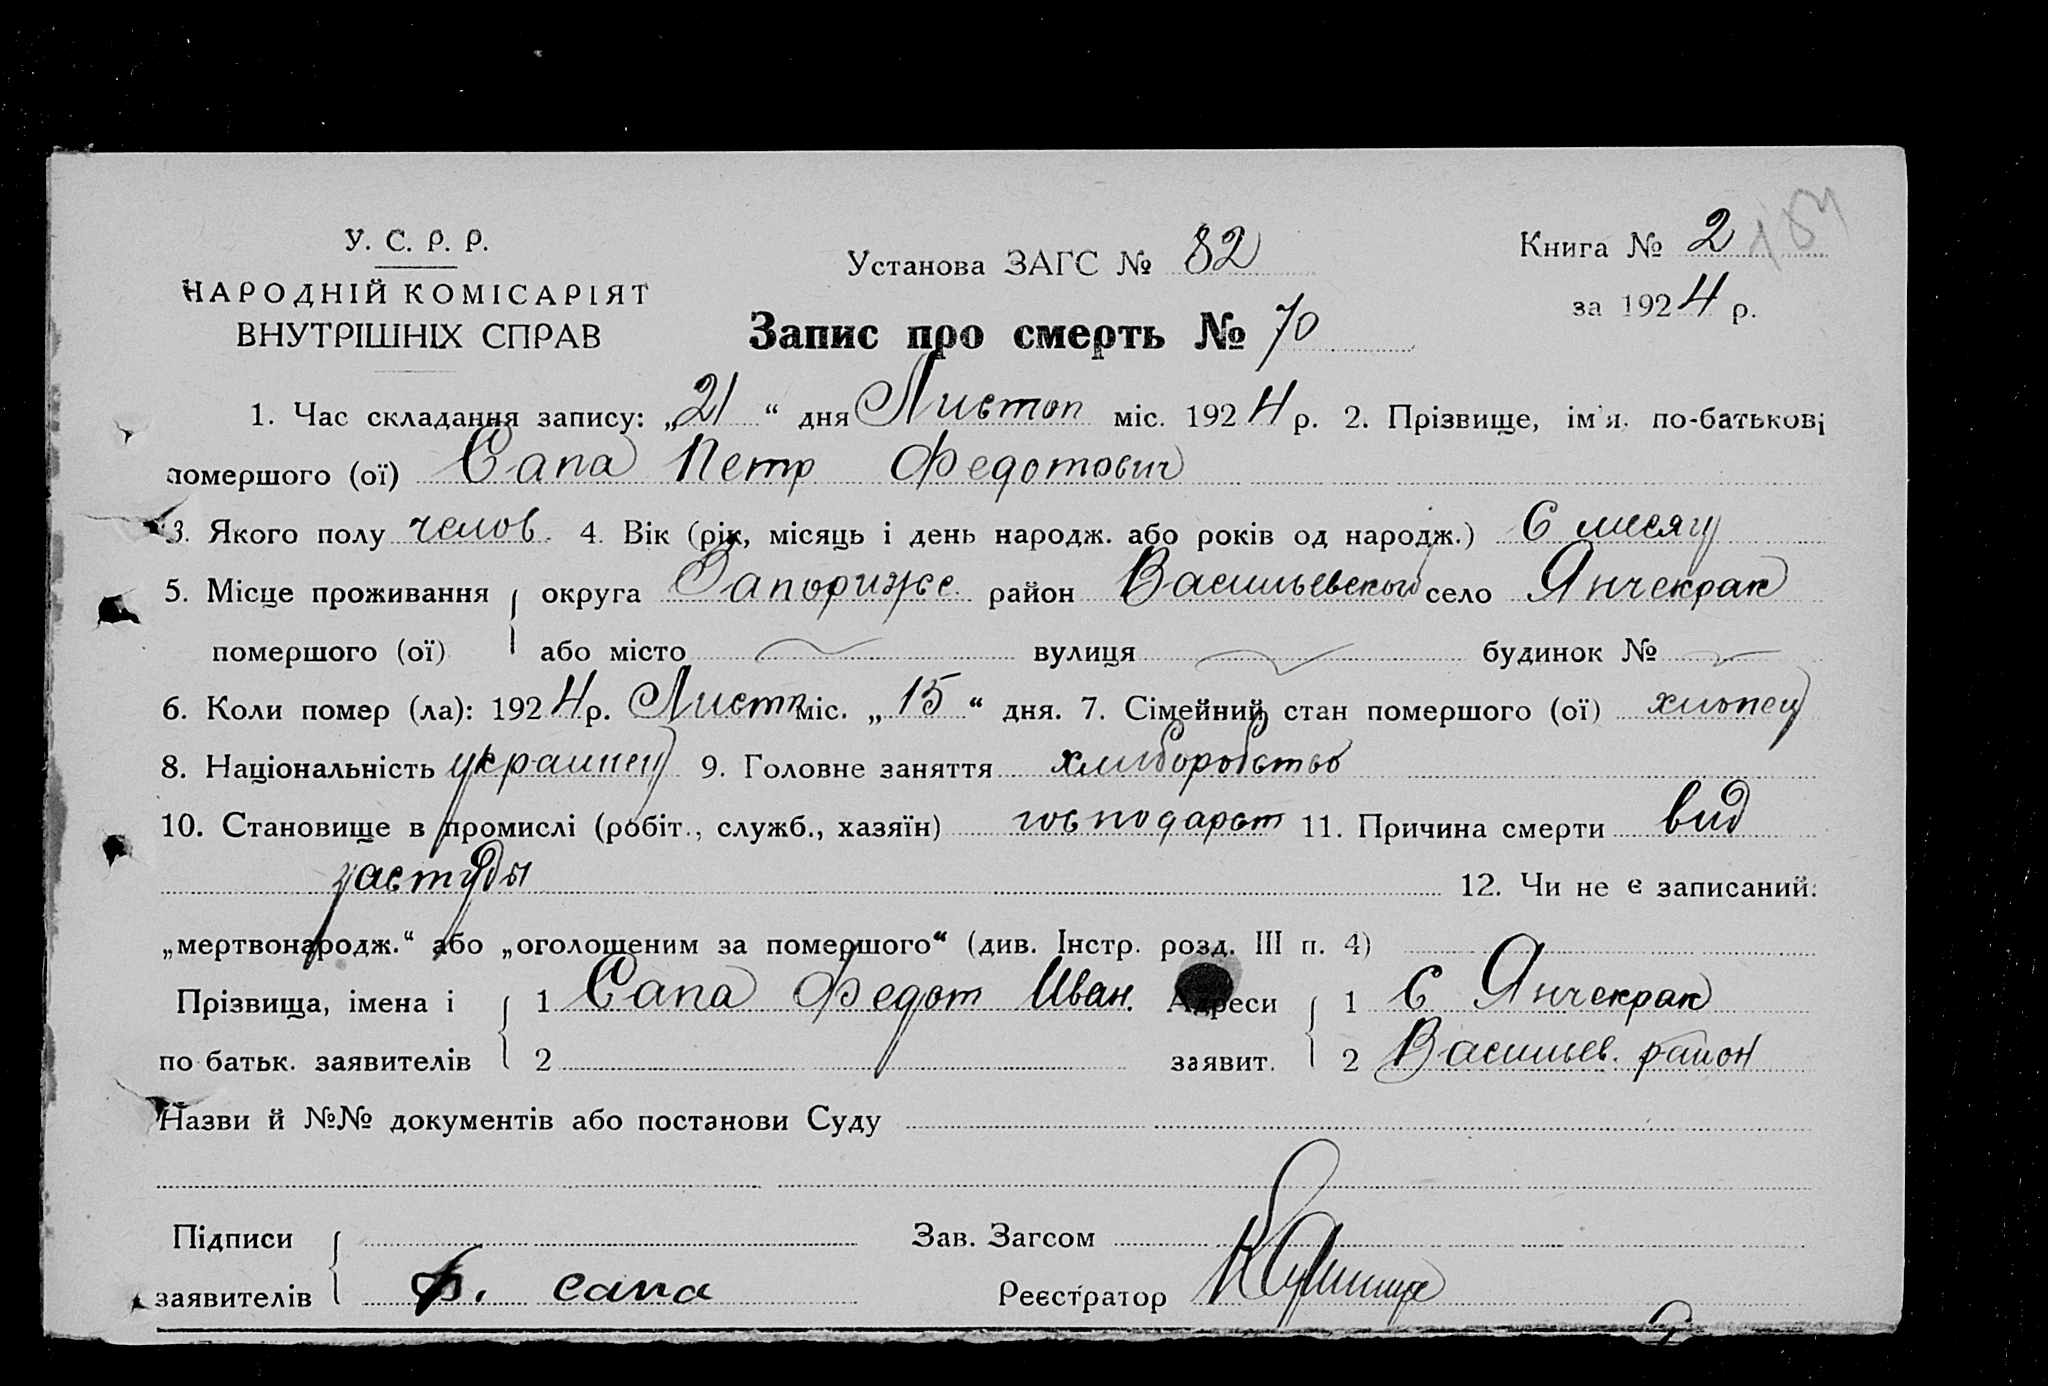 У. С. Р. Р.
НАРОДНІЙ КОМІСАРІЯТ
ВНУТРІШНІХ СПРАВ
Установа ЗАГС № 82
Книга № 2
за 1924 р.
Запис про смерть № 70
1. Час складання запису: „21“ дня Листоп міс. 1924 р. 2. Прізвище, ім'я, по-батькові
помершого (ої) Сапа Петр Федотович
3. Якого полу челов. 4. Вік (рік, місяць і день народж. або років од народж.) 6 месяц
5. Місце проживання округа Запорижс. район Васильевский село Янчекрак
помершого (ої) або місто вулиця будинок №
6. Коли помер (ла): 1924 р. Листп міс. „15“ дня. 7. Сімейний стан помершого (ої) хлопец
8. Національність украинец 9. Головне заняття хлиборобство
10. Становище в промислі (робіт., служб., хазяїн) господарст 11. Причина смерти вид
застуды 12. Чи не є записаний:
„мертвонародж.“ або „оголошеним за помершого“ (див. Інстр. розд. III п. 4)
Прізвища, імена і 1 Сапа Федот Иван. Адреси 1 С Янчекрак
по батьк. заявителів 2 заявит. 2 Васильев. район
Назви й №№ документів або постанови Суду
Підписи Зав. Загсом
заявителів Ф. сапа Реєстратор